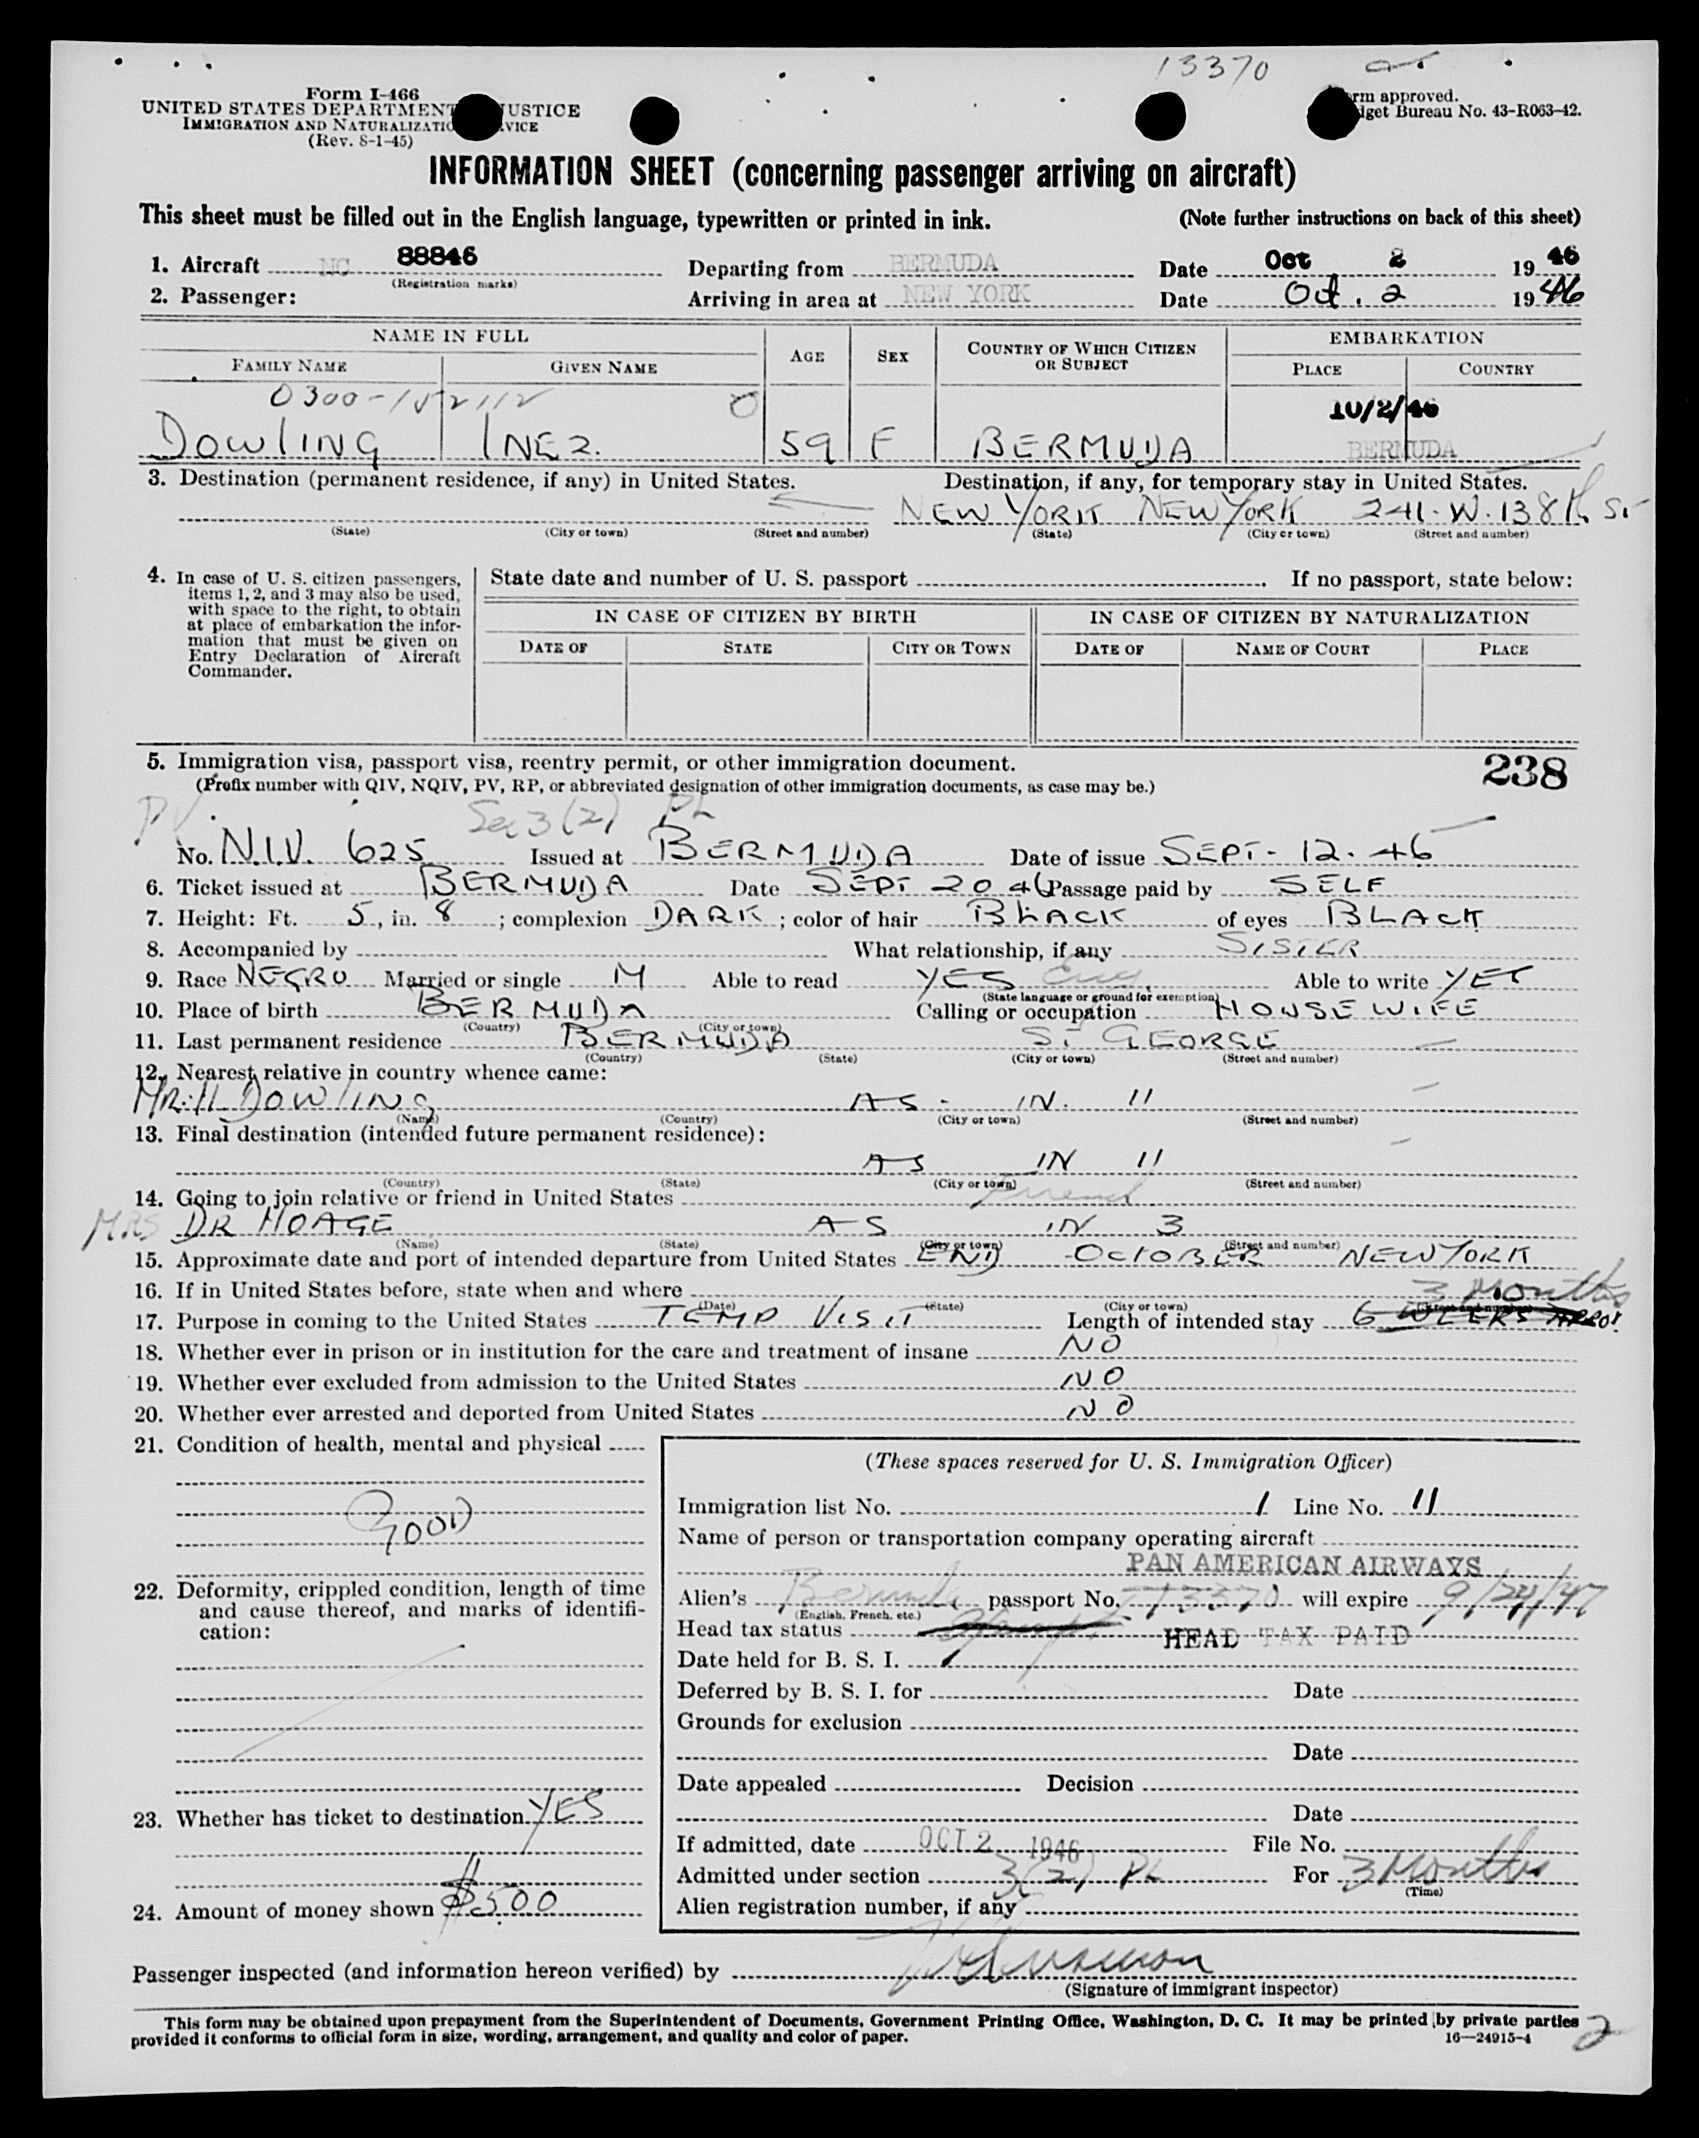 13370
Form I-466
UNITED STATES DEPARTMENT JUSTICE
IMMIGRATION AND NATURALIZATIO VICE
(Rev. 8-1-45)
rm approved.
dget Bureau No. 43-R063-42.
INFORMATION SHEET (concerning passenger arriving on aircraft)
This sheet must be filled out in the English language, typewritten or printed in ink. (Note further instructions on back of this sheet)
1. Aircraft NC 88846 Departing from BERMUDA Date Oct 2 19 46
(Registration marks)
2. Passenger: Arriving in area at NEW YORK Date Oct. 2 19 46
NAME IN FULL AGE SEX COUNTRY OF WHICH CITIZEN OR SUBJECT EMBARKATION
FAMILY NAME GIVEN NAME PLACE COUNTRY
0300- 0 10/2/46
DOWLING INEZ. 59 F BERMUDA BERMUDA
3. Destination (permanent residence, if any) in United States. Destination, if any, for temporary stay in United States.
NEW YORK NEW YORK 241. W. 138th St
(State) (City or town) (Street and number) (State) (City or town) (Street and number)
4. In case of U. S. citizen passengers, items 1, 2, and 3 may also be used, with space to the right, to obtain at place of embarkation the information that must be given on Entry Declaration of Aircraft Commander.
State date and number of U. S. passport . If no passport, state below:
IN CASE OF CITIZEN BY BIRTH IN CASE OF CITIZEN BY NATURALIZATION
DATE OF STATE CITY OR TOWN DATE OF NAME OF COURT PLACE
5. Immigration visa, passport visa, reentry permit, or other immigration document. 238
(Prefix number with QIV, NQIV, PV, RP, or abbreviated designation of other immigration documents, as case may be.)
PV Sec 3(2) PL
No. N.I.V. 625 Issued at BERMUDA Date of issue SEPT- 12. 46
6. Ticket issued at BERMUDA Date SEPT 20 46 Passage paid by SELF
7. Height: Ft. 5, in. 8; complexion DARK; color of hair BLACK of eyes BLACK
8. Accompanied by What relationship, if any SISTER
9. Race NEGRO Married or single M Able to read YES Eng. Able to write YES
(State language or ground for exemption)
10. Place of birth BERMUDA Calling or occupation HOUSE WIFE
(Country) (City or town)
11. Last permanent residence BERMUDA ST GEORGE
(Country) (State) (City or town) (Street and number)
12. Nearest relative in country whence came:
MR. H. DOWLING AS - IN. 11
(Name) (Country) (City or town) (Street and number)
13. Final destination (intended future permanent residence):
AS IN 11
(Country) (State) (City or town) (Street and number)
14. Going to join relative or friend in United States Friend
MRS DR HOAGE AS IN 3
(Name) (State) (City or town) (Street and number)
15. Approximate date and port of intended departure from United States END OCTOBER NEW YORK
16. If in United States before, state when and where 3 Months
(Date) (State) (City or town) (Street and number)
17. Purpose in coming to the United States TEMP VISIT Length of intended stay 6 WEEKS
18. Whether ever in prison or in institution for the care and treatment of insane NO
19. Whether ever excluded from admission to the United States NO
20. Whether ever arrested and deported from United States NO
21. Condition of health, mental and physical
GOOD
22. Deformity, crippled condition, length of time and cause thereof, and marks of identification:
23. Whether has ticket to destination YES
24. Amount of money shown $500
(These spaces reserved for U. S. Immigration Officer)
Immigration list No. 1 Line No. 11
Name of person or transportation company operating aircraft
PAN AMERICAN AIRWAYS
Alien's Bermuda passport No. 13370 will expire 9/24/47
(English, French, etc.)
Head tax status HEAD TAX PAID
Date held for B. S. I.
Deferred by B. S. I. for Date
Grounds for exclusion
Date
Date appealed Decision
Date
If admitted, date OCT 2 1946 File No.
Admitted under section 3(2) PL For 3 Months
(Time)
Alien registration number, if any
Passenger inspected (and information hereon verified) by
(Signature of immigrant inspector)
This form may be obtained upon prepayment from the Superintendent of Documents, Government Printing Office, Washington, D. C. It may be printed by private parties
provided it conforms to official form in size, wording, arrangement, and quality and color of paper. 16—24915-4 2